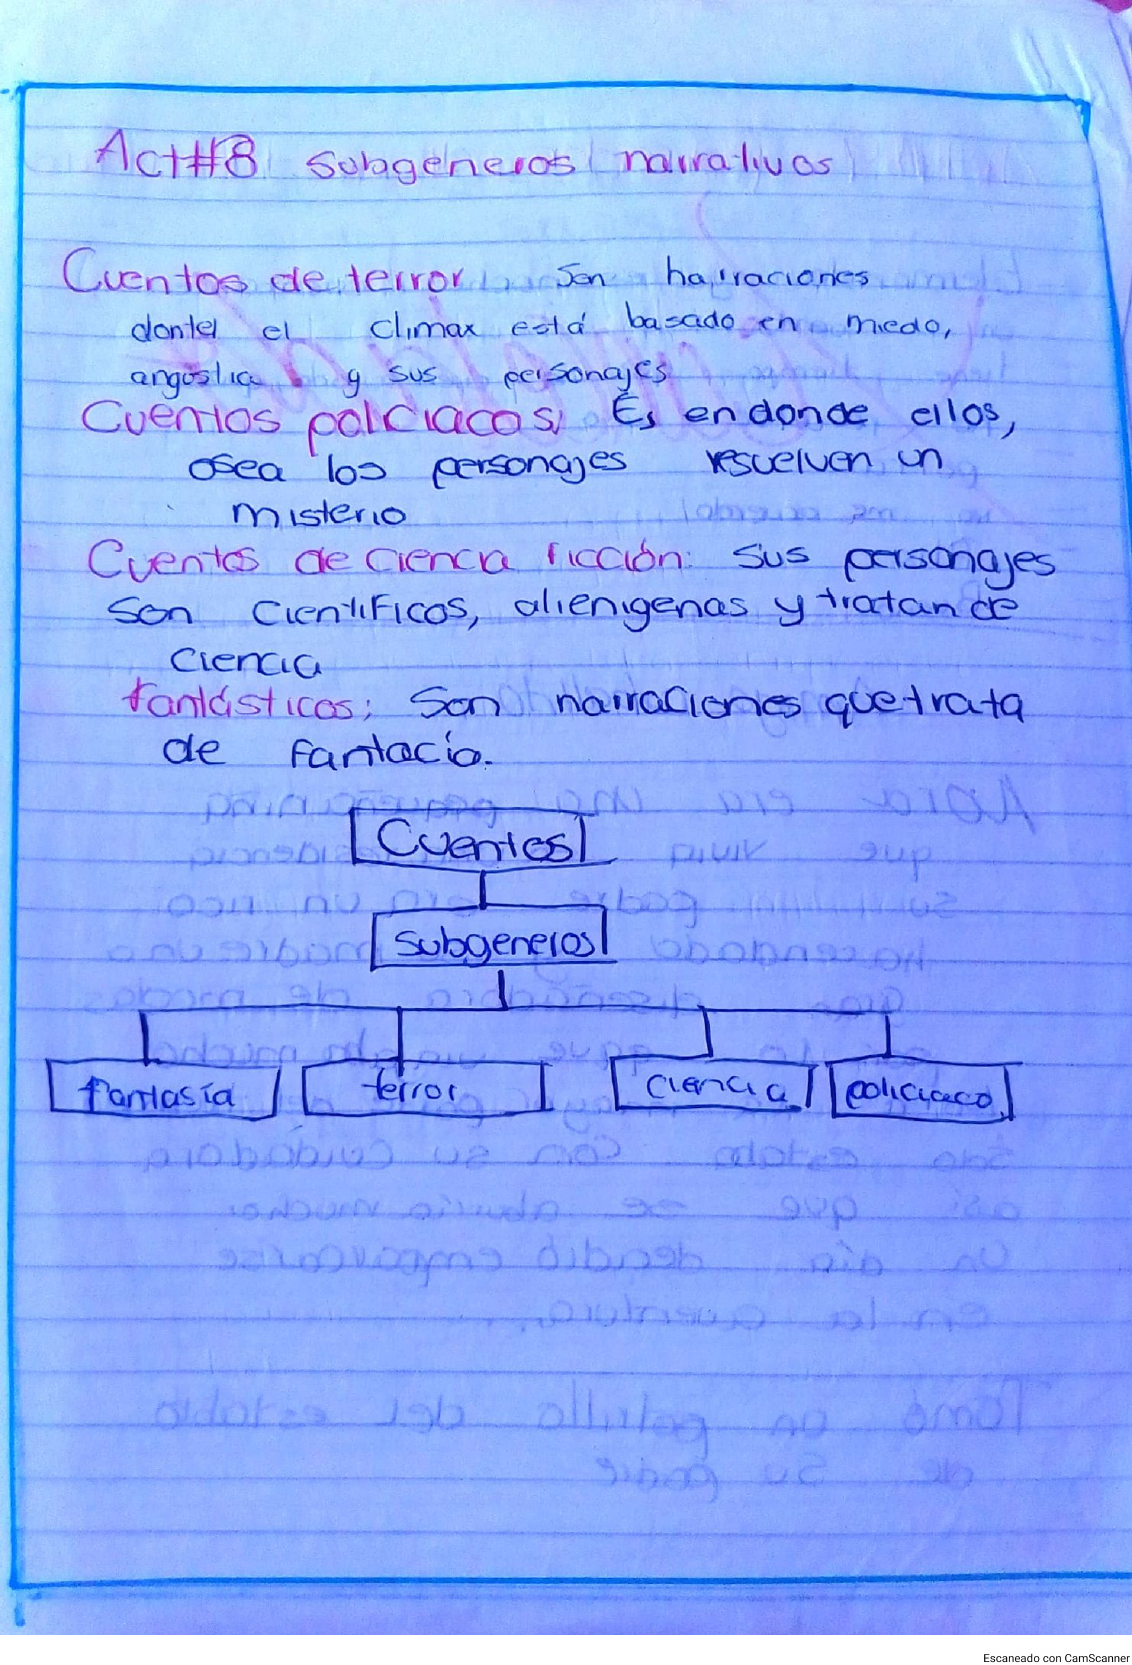 Act#8 subgeneros narrativos
Cuentos de terror Son narraciones
donde el climax está basado en miedo,
angustia y sus personajes
Cuentos policiacos; Es en donde ellos,
osea los personajes resuelven un
misterio
Cuentos de ciencia ficción: sus personajes
son cientificos, alienigenas y tratan de
ciencia
fantásticos; Son narraciones que trata
de fantacia.
Cuentos
subgeneros
fantasía terror ciencia policiaco
Escaneado con CamScanner